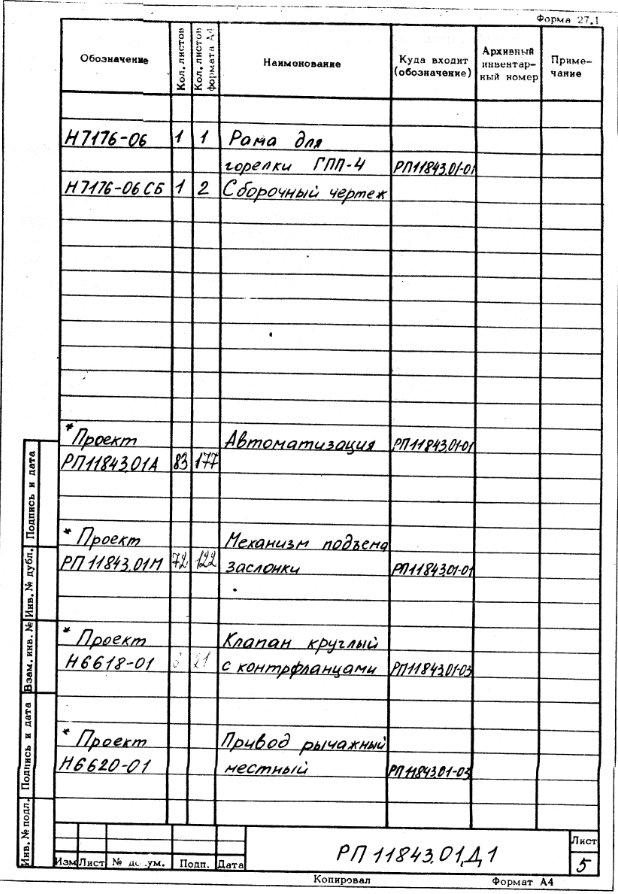 Форма 27.1
Обозначение Кол. листов Кол. листов формата А4 Наименование Куда входит (обозначение) Архивный инвентарный номер Примечание
Н7176-06 1 1 Рама для
горелки ГПП-4 РП11843.01-01
Н7176-06 СБ 1 2 Сборочный чертеж
* Проект Автоматизация РП11843.01-01
РП11843.01А 83 177
* Проект Механизм подъема
РП11843.01М 72 122 заслонки РП11843.01-01
* Проект Клапан круглый
Н6618-01 21 с контрфланцами РП11843.01-03
* Проект Привод рычажный
Н6620-01 местный РП11843.01-03
Инв. № подл. Подпись и дата Взам. инв. № Инв. № дубл. Подпись и дата
РП 11843.01Д1
Лист
5
Изм Лист № Подп. Дата
Копировал Формат А4